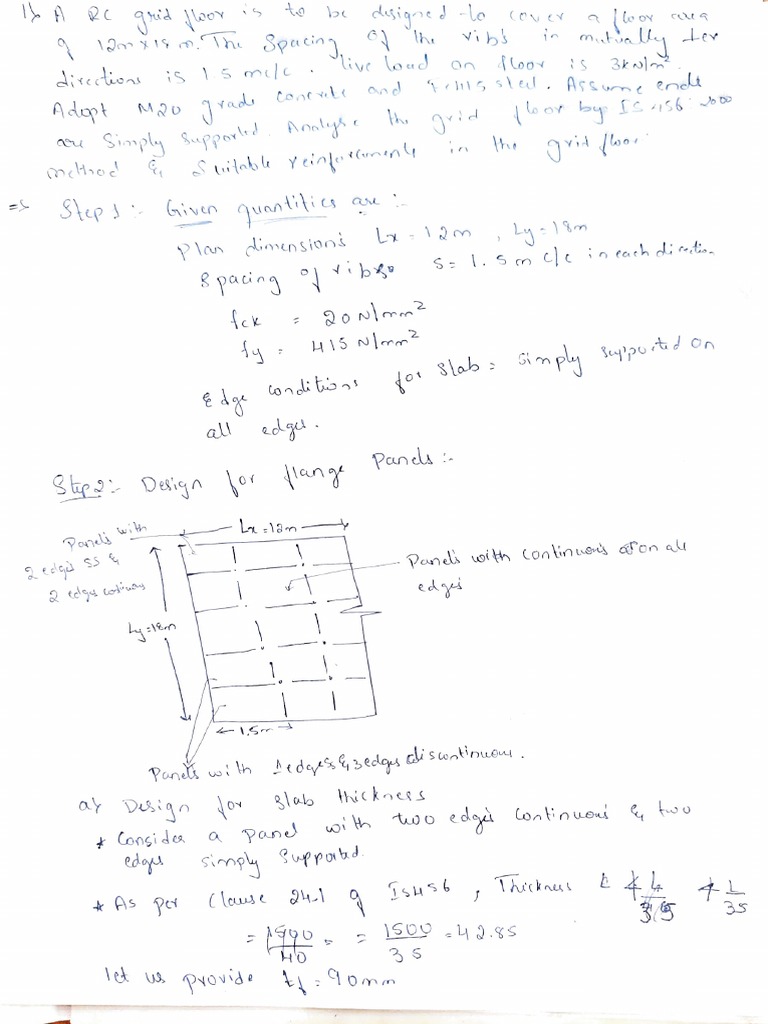 1) A RC grid floor is to be designed to cover a floor area
of 12m x 18m. The Spacing of the ribs in mutually ter
directions is 1.5 mc/c. live load on floor is 3kN/m².
Adopt M20 grade concrete and steel. Assume ends
are Simply supported. Analyse the grid floor by IS 456:2000
method & Suitable reinforcements in the grid floor.
=> Step1:- Given quantities are :-
Plan dimensions Lx = 12m , Ly = 18m
Spacing of ribs S = 1.5m c/c in each direction
fck = 20 N/mm²
fy = 415 N/mm²
Edge conditions for slab = simply supported on
all edges.
Step2:- Design for flange Panels:-
Lx = 12m
Panels with
2 edges SS &
2 edges continuous
Panels with continuous on all
edges
Ly=18m
1.5m
Panels with 1edge & 3edges discontinuous.
a) Design for slab thickness
* Consider a Panel with two edges continuous & two
edges simply supported.
* As per Clause 24.1 of IS456 , Thickness ≮ L/35
= 1500/40 = 1500/35 = 42.85
let us provide tf = 90mm